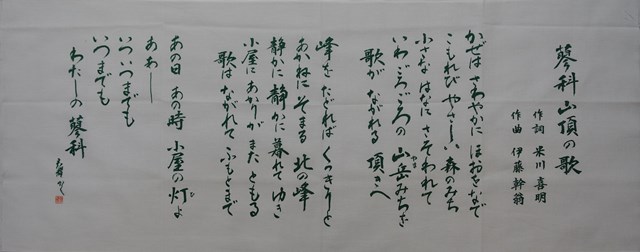 蓼科山頂の歌
作詞 米川喜明
作曲 伊藤幹翁
かぜは さわやかに ほおをなで
こもれび やさしい 森のみち
小さな はなに さそわれて
いわごろごろの 山岳みちを
歌が ながれる 頂きへ
峰を たどれば くっきりと
あかねに そまる 北の峰
静かに 静かに 暮れて ゆき
小屋に あかりが また ともる
歌は ながれて ふもとまで
あの日 あの時 小屋の 灯よ
ああー
いついつまでも
いつまでも
わたしの 蓼科